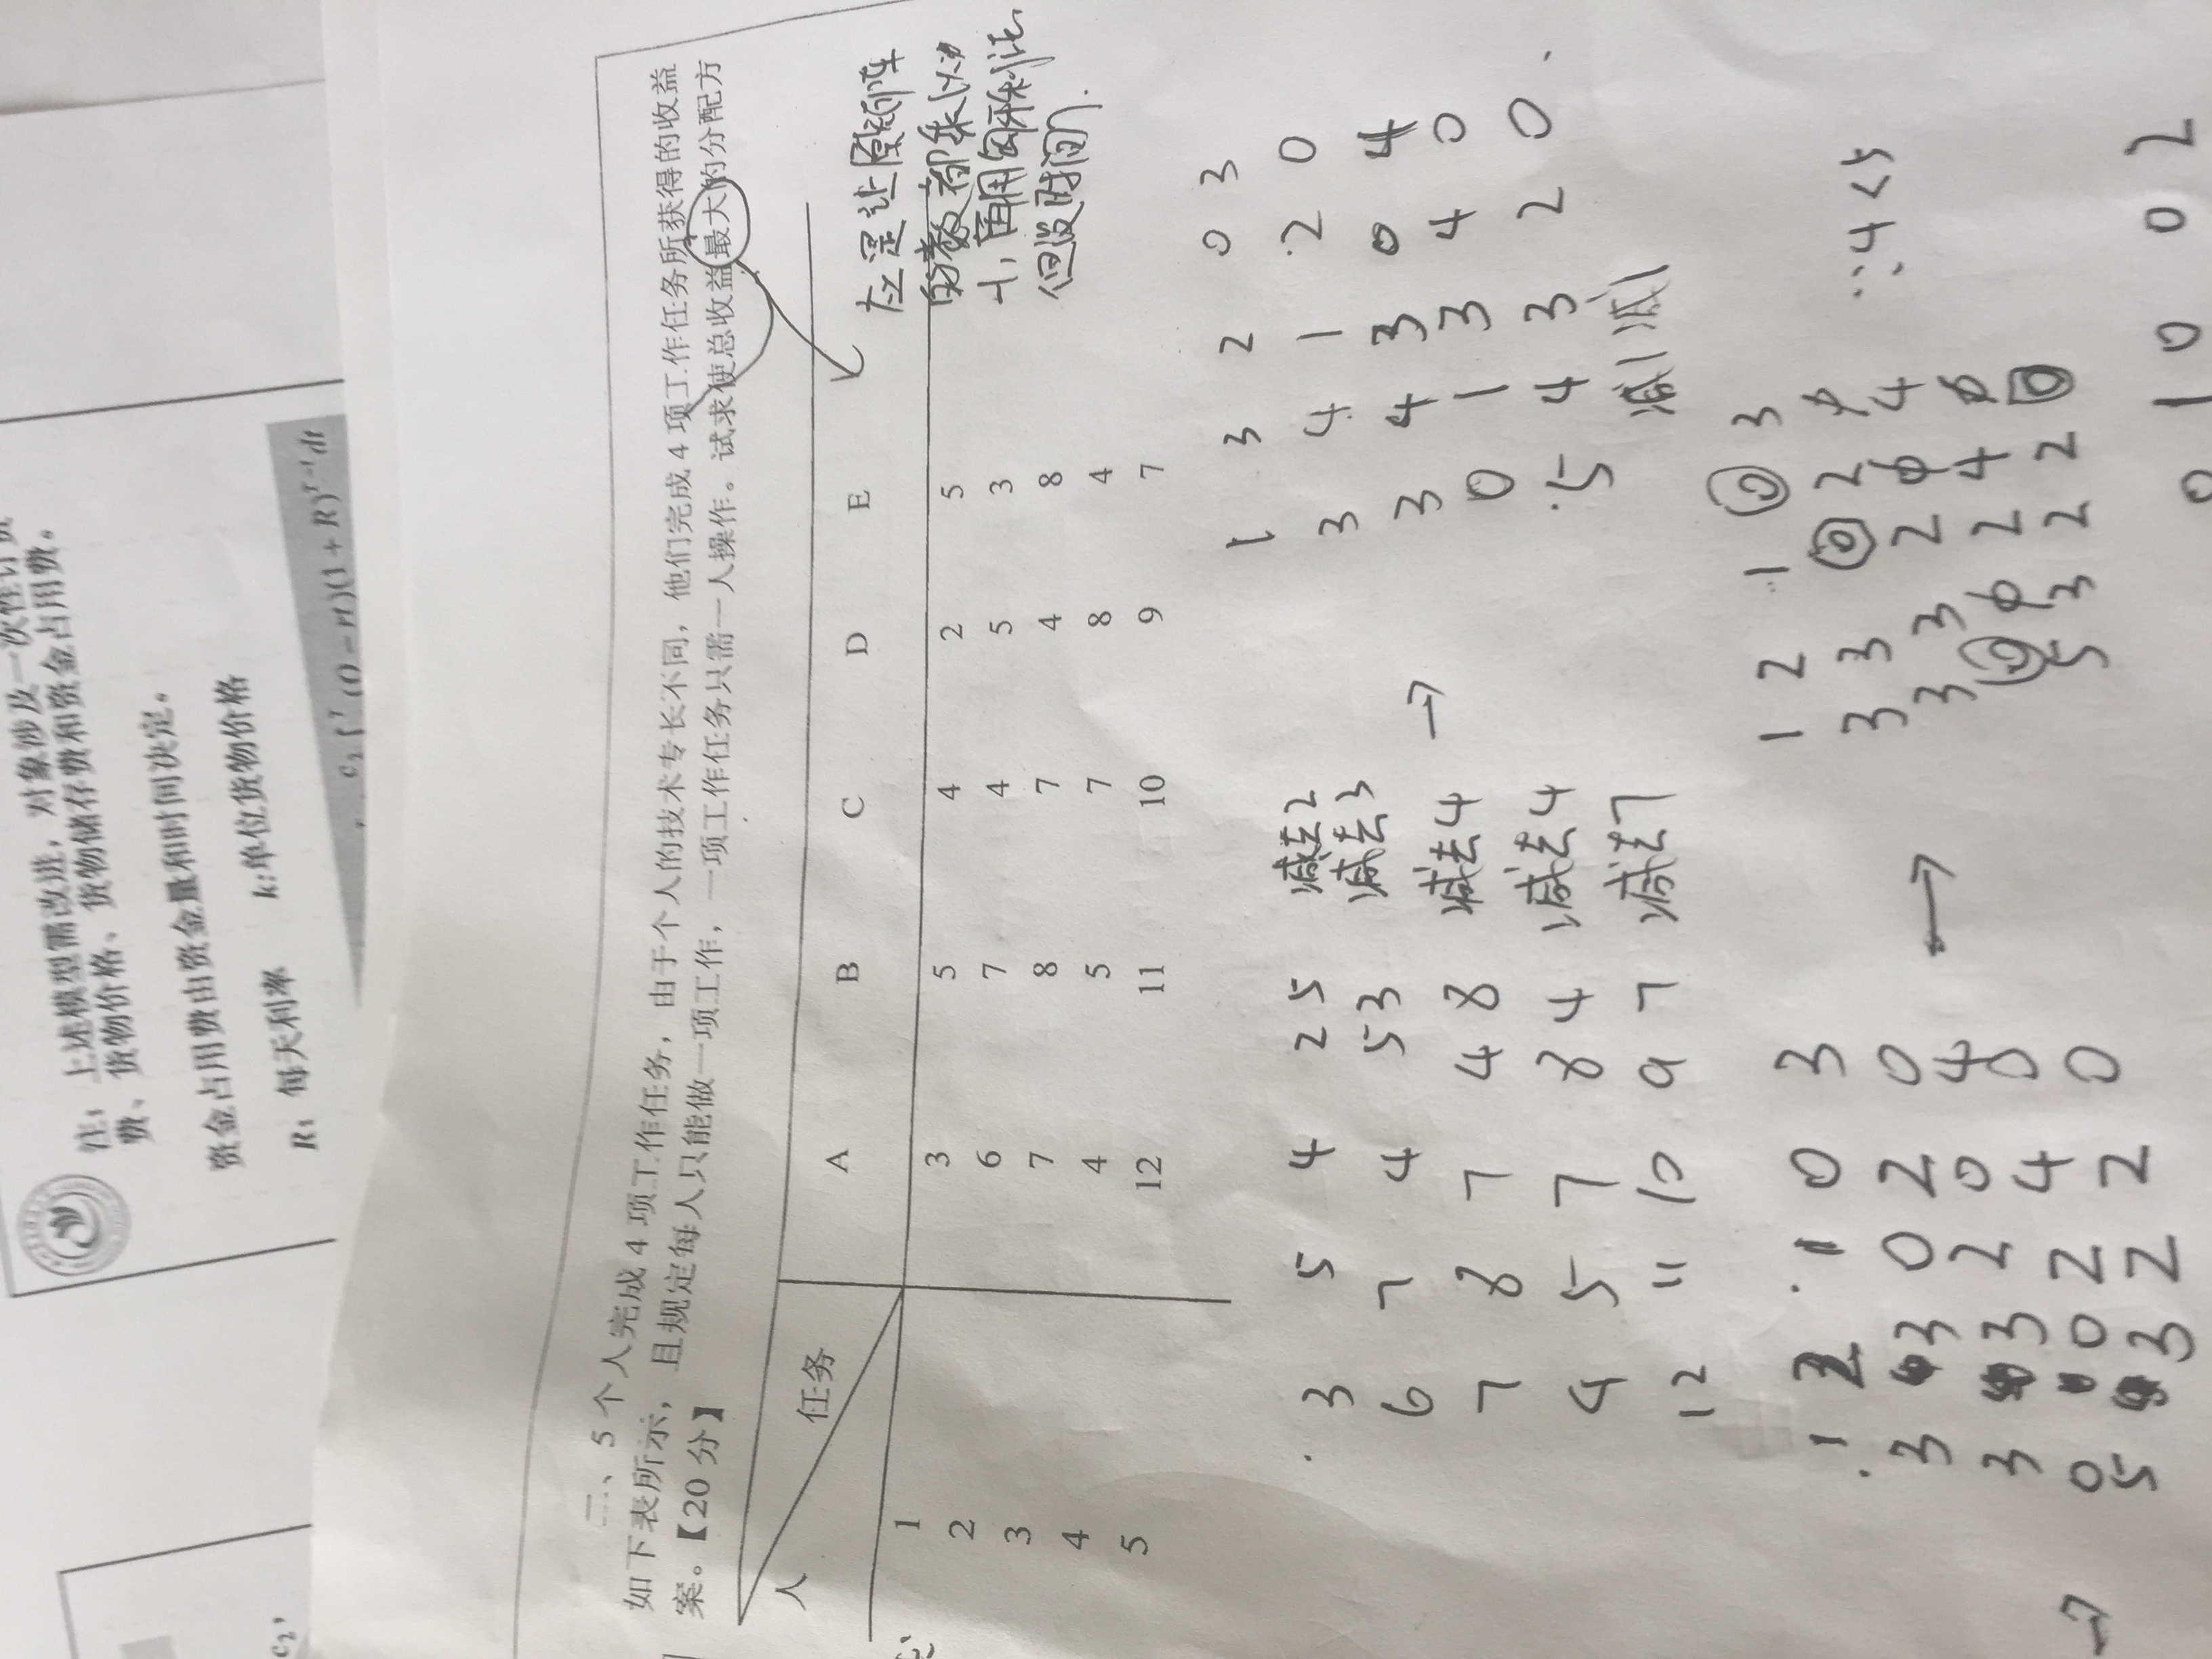 注：上述模型需改进，对象涉及一次性订货
费、货物价格、货物储存费和资金占用费。
资金占用费由资金量和时间决定。
R：每天利率 k:单位货物价格
c₂,
c₂∫ᵀ(Q－rt)(1＋R)ᵀ⁻ᵗdt
二、5个人完成4项工作任务，由于个人的技术专长不同，他们完成4项工作任务所获得的收益
如下表所示，且规定每人只能做一项工作，一项工作任务只需一人操作。试求使总收益最大的分配方
案。【20分】
人 任务 A B C D E
1 3 5 4 2 5
2 6 7 4 5 3
3 7 8 7 4 8
4 4 5 7 8 4
5 12 11 10 9 7
应是让原矩阵
的数都乘以
-1，再用匈牙利法，
但没时间了.
3 5 4 2 5 减去2
6 7 4 5 3 减去3
7 8 7 4 8 减去4
4 5 7 8 4 减去4
12 11 10 9 7 减去7
→
1 3 2 0 3
3 4 1 2 0
3 4 3 0 4
0 1 3 4 0
5 4 3 2 0
减1 减1
→
1 2 1 0 3
3 3 0 2 0
3 3 2 0 4
0 0 2 4 0
5 3 2 2 0
→
1 2 1 0 3
3 3 0 2 0
3 3 2 0 4
0 0 2 4 0
5 3 2 2 0
∵4<5
0 1 0 0 2